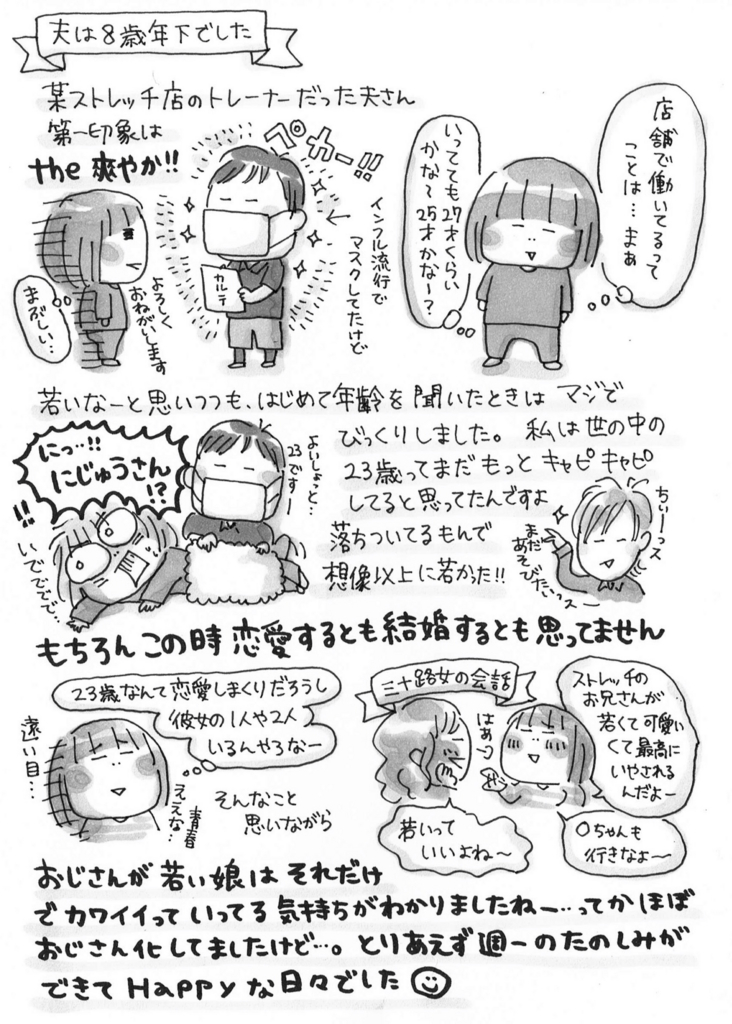 夫は8歳年下でした
某ストレッチ店のトレーナーだった夫さん
第一印象は
the 爽やか!!
ペカー!!
インフル流行で
マスクしてたけど
カルテ
よろしく
おねがいします
まぶしい…
店舗で働いてるって
ことは…まぁ
いってても27才くらい
かな〜25才かな〜?
若いなーと思いつつも、はじめて年齢を聞いたときは マジで
びっくりしました。私は世の中の
23歳ってまだもっとキャピキャピ
してると思ってたんですよ
落ちついてるもんで
想像以上に若かった!!
にっ…!!
にじゅうさん
!?
!!
いでででで…
よいしょっと…
23ですー
ちぃーっス
まだ
あそびたいっスー
もちろんこの時恋愛するとも結婚するとも思ってません
23歳なんて恋愛しまくりだろうし
彼女の1人や2人
いるんやろなー
遠い目…
青春
ええな…
そんなこと
思いながら
三十路女の会話
はぁ〜
ストレッチの
お兄さんが
若くて可愛い
くて最高に
いやされる
んだよー
若いって
いいよね〜
〇ちゃんも
行きなよ〜
おじさんが若い娘はそれだけ
でカワイイっていってる気持ちがわかりましたねー…ってかほぼ
おじさん化してましたけど…。とりあえず週一のたのしみが
できてHappyな日々でした